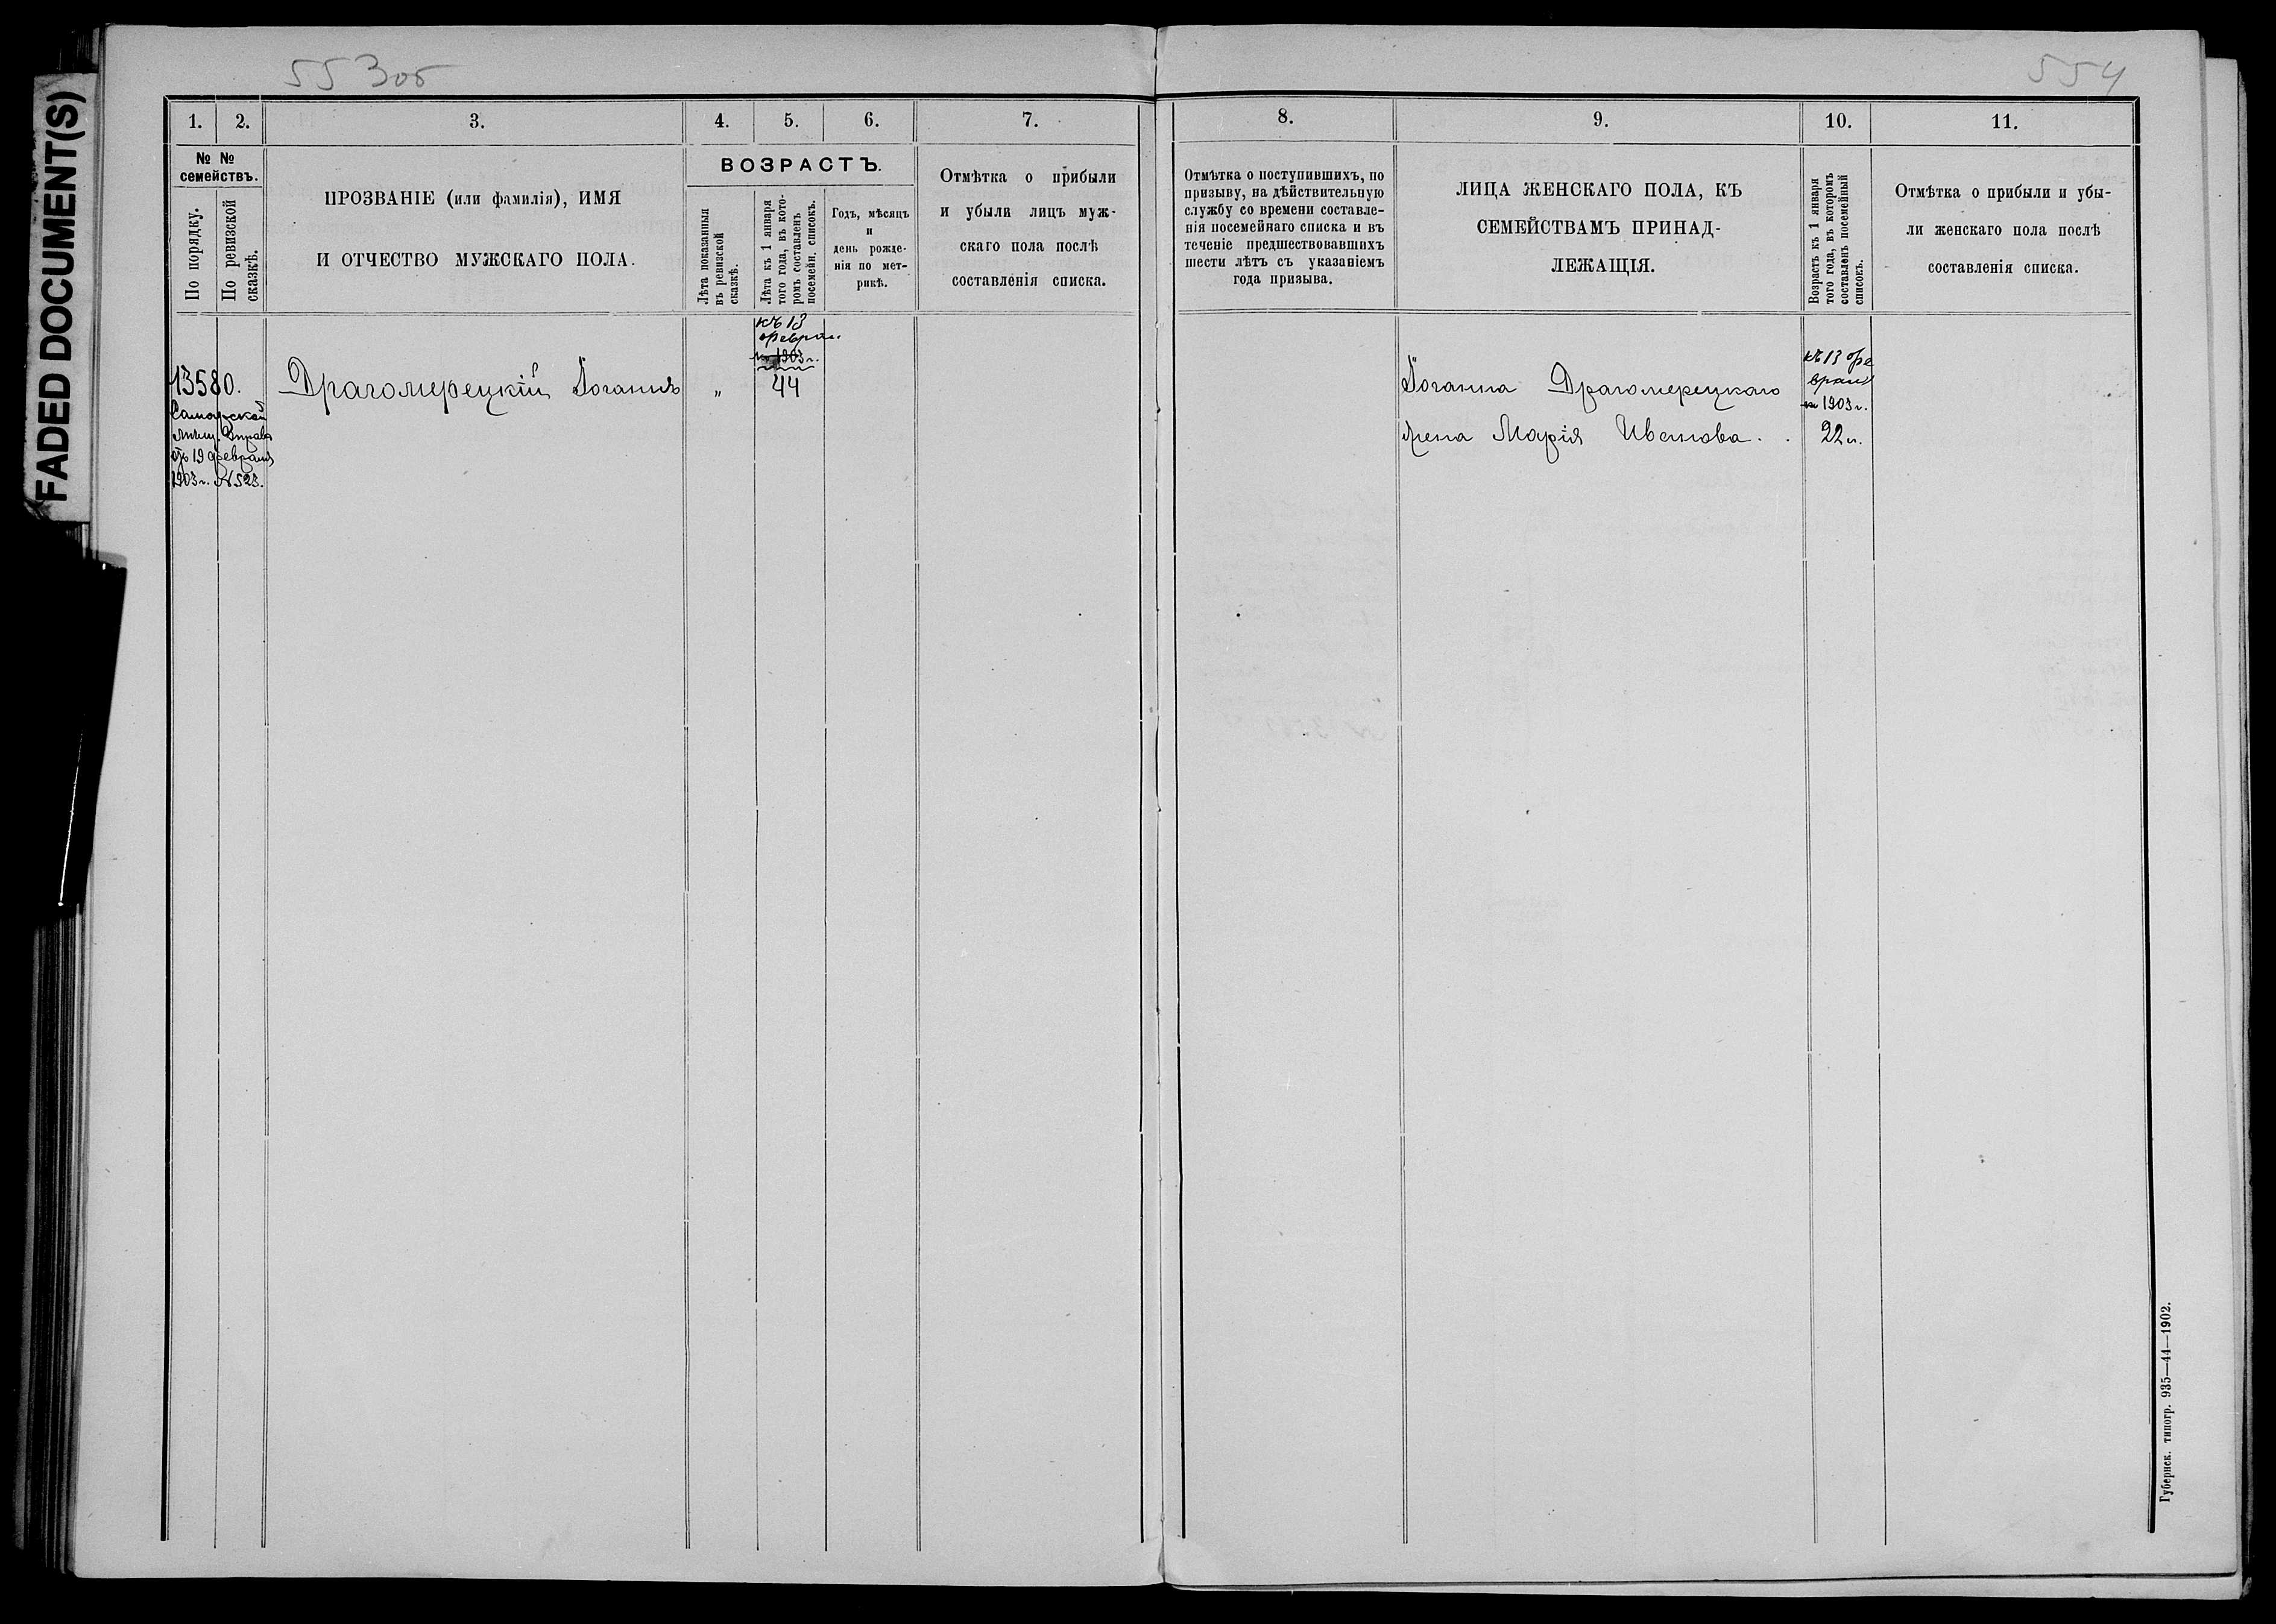 FADED DOCUMENT(S)
553об
554
1. 2. 3. 4. 5. 6. 7.
№ №
семействъ.
По порядку.
По ревизской
сказкѣ.
ПРОЗВАНІЕ (или фамилія), ИМЯ
И ОТЧЕСТВО МУЖСКАГО ПОЛА.
ВОЗРАСТЪ.
Лѣта показанныя
въ ревизской
сказкѣ.
Лѣта къ 1 января
того года, въ кото-
ромъ составленъ
посемейн. списокъ.
Годъ, мѣсяцъ
и
день рожде-
нія по мет-
рикѣ.
Отмѣтка о прибыли
и убыли лицъ муж-
скаго пола послѣ
составленія списка.
къ 13
феврал
1903 г.
13580.
Драгомерецкій Іоганнъ
„
44
Самарской
мѣщ. Управы
19 февраля
1903 г. № 523.
8. 9. 10. 11.
Отмѣтка о поступившихъ, по
призыву, на дѣйствительную
службу со времени составле-
нія посемейнаго списка и въ
теченіе предшествовавшихъ
шести лѣтъ съ указаніемъ
года призыва.
ЛИЦА ЖЕНСКАГО ПОЛА, КЪ
СЕМЕЙСТВАМЪ ПРИНАД-
ЛЕЖАЩІЯ.
Возрастъ къ 1 января
того года, въ которомъ
составленъ посемейный
списокъ.
Отмѣтка о прибыли и убы-
ли женскаго пола послѣ
составленія списка.
къ 13 фе
враля
1903 г.
Іоганна Драгомерецкаго
жена Марія Иванова.
22 л.
Губернск. типогр. 935—44—1902.